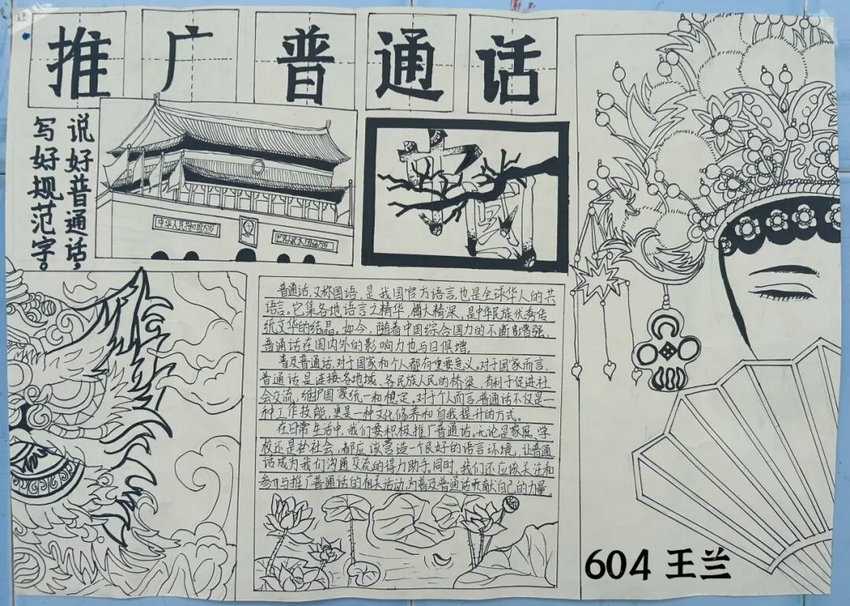 推广普通话
说好普通话，
写好规范字。
普通话，又称国语，是我国官方语言，也是全球华人的共
语言。它集各地语言之精华，博大精深，是中华民族优秀传
统文华的结晶。如今，随着中国综合国力的不断增强，
普通话在国内外的影响力也与日俱增。
普及普通话，对于国家和个人都有重要意义。对于国家而言，
普通话是连接各地域、各民族人民的桥梁，有利于促进社
会交流，维护国家统一和稳定。对于个人而言，普通话不仅是一
种工作技能，更是一种文化修养和自我提升的方式。
在日常生活中，我们要积极推广普通话。无论是家庭、学
校还是社会，都应该营造一个良好的语言环境，让普通
话成为我们沟通交流的得力助手。同时，我们还应该关注和
参与推广普通话的相关活动，为普及普通话贡献自己的力量。
604 王兰